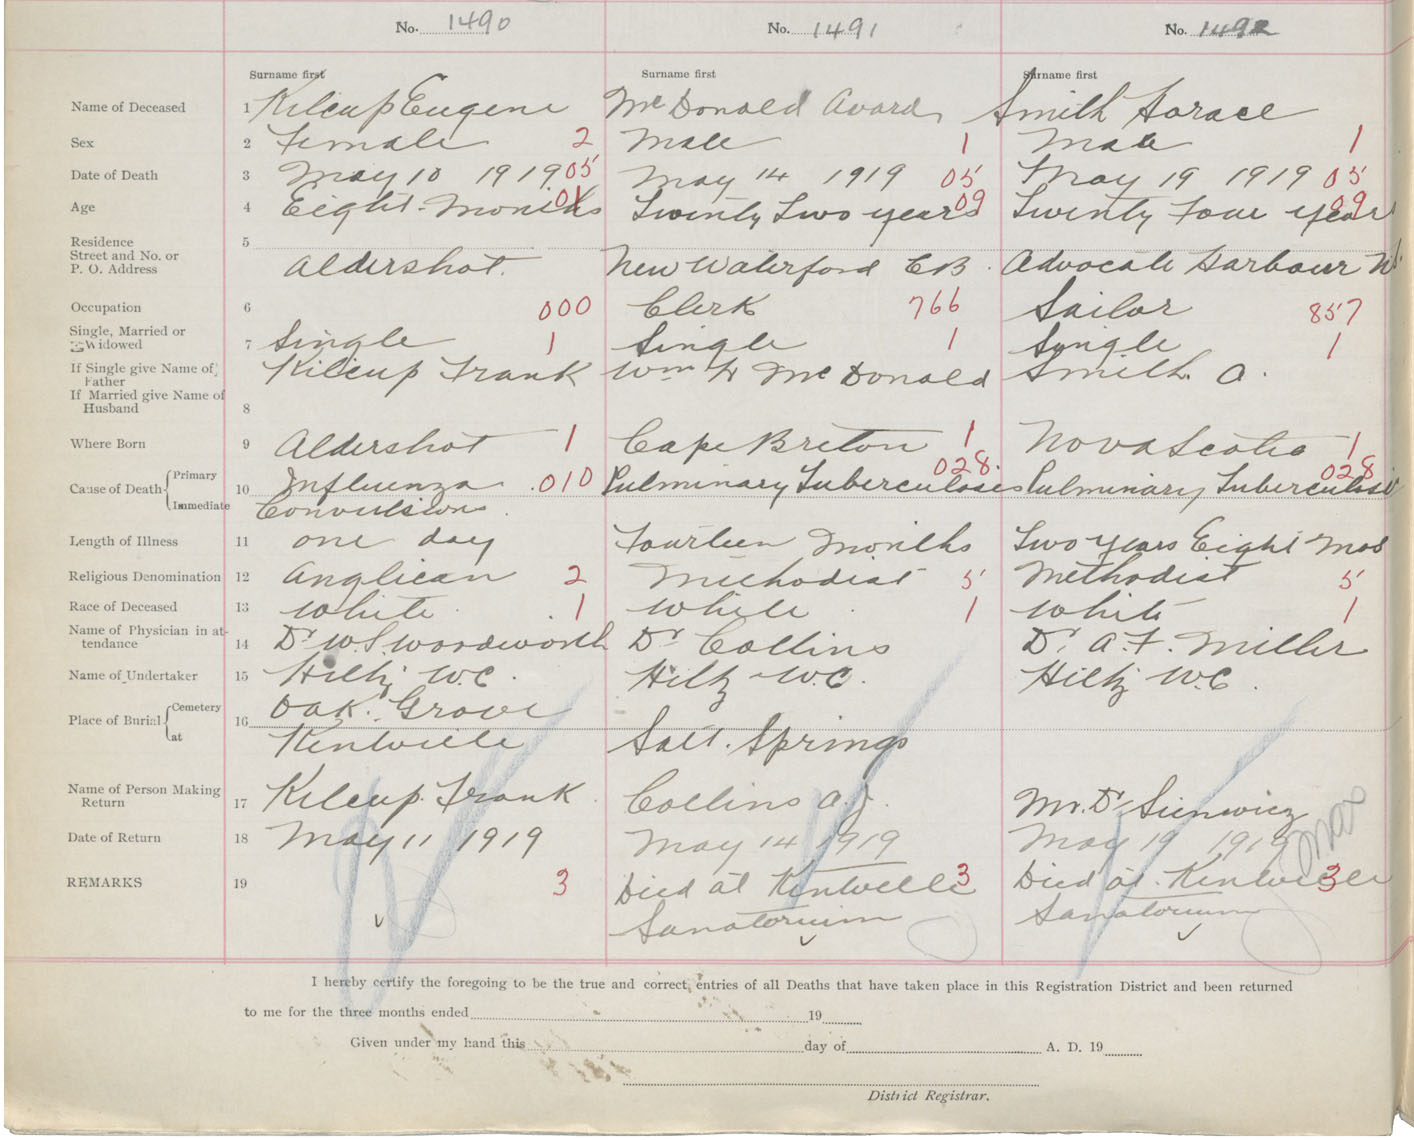 No. 1490 No. 1491 No. 1492
Surname first Surname first Surname first
Name of Deceased 1 Kilcup Eugene McDonald Avard Smith Horace
Sex 2 Female 2 Male 1 Male 1
Date of Death 3 May 10 1919 05 May 14 1919 05 May 19 1919 05
Age 4 Eight Months Twenty Two years 09 Twenty Four years 09
Residence 5
Street and No. or
P. O. Address Aldershot. New Waterford C.B. Advocate Harbour
Occupation 6 000 Clerk 766 Sailor 857
Single, Married or
Widowed 7 Single 1 Single 1 Single 1
If Single give Name of Kilcup Frank Wm H McDonald Smith A.
Father
If Married give Name of
Husband 8
Where Born 9 Aldershot 1 Cape Breton 1 Nova Scotia 1
Cause of Death { Primary 10 Influenza 010 Pulminary Tuberculosis 028 Pulminary Tuberculosis 028
Immediate Convulsions.
Length of Illness 11 one day Fourteen Months Two years Eight Mos
Religious Denomination 12 Anglican 2 Methodist 5 Methodist 5
Race of Deceased 13 White 1 White 1 White 1
Name of Physician in at-
tendance 14 Dr W.S. Woodworth Dr Collins Dr. A.F. Miller
Name of Undertaker 15 Hiltz W.C. Hiltz W.C. Hiltz W.C.
Place of Burial { Cemetery 16 Oak. Grove
at Kentville Salt. Springs
Name of Person Making
Return 17 Kilcup. Frank Collins A.J. Mr. Dr. Sienwicz
Date of Return 18 May 11 1919 May 14 1919 May 19 1919
REMARKS 19 3 Died at Kentville 3 Died at Kentville 3
Sanatorium Sanatorium
I hereby certify the foregoing to be the true and correct entries of all Deaths that have taken place in this Registration District and been returned
to me for the three months ended 19
Given under my hand this day of A. D. 19
District Registrar.